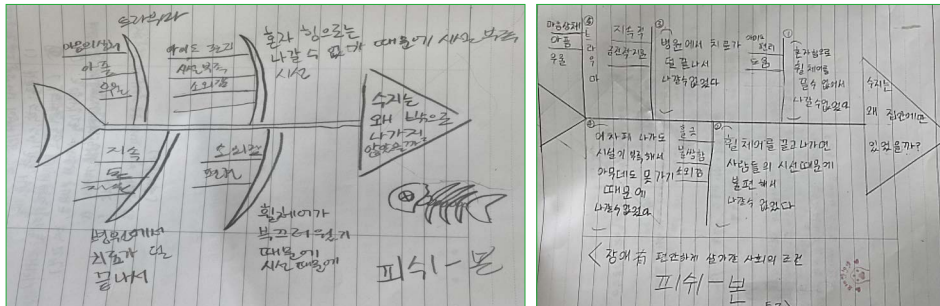 트라우마
마음의상처
아픔
우울
시설부족
소외감
혼자 힘으로는
나갈 수 없기 때문에 시설 부족
시선
수지는
왜 밖으로
나가지
않았을까?
지속
소외감
병원에서
치료가 덜
끝나서
휠체어가
부끄러웠기
때문에
시선 때문에
피쉬-본
마음상처
아픔
우울
트라우마
지속적
병원에서 치료가
덜 끝나서
나갈수없었다
도움
혼자힘으로
휠체어를
끌수 없어서
나갈수없었다
수지는
왜 집안에만
있었을까?
어차피 나가도
시설이 부족해서
아무데도 못가기
때문에
나갈수없었다
불쌍함
소외감
휠체어를 끌고나가면
사람들의 시선때문에
불편해서
나갈수 없었다
편안하게 살아갈 사회의 조건
피쉬-본